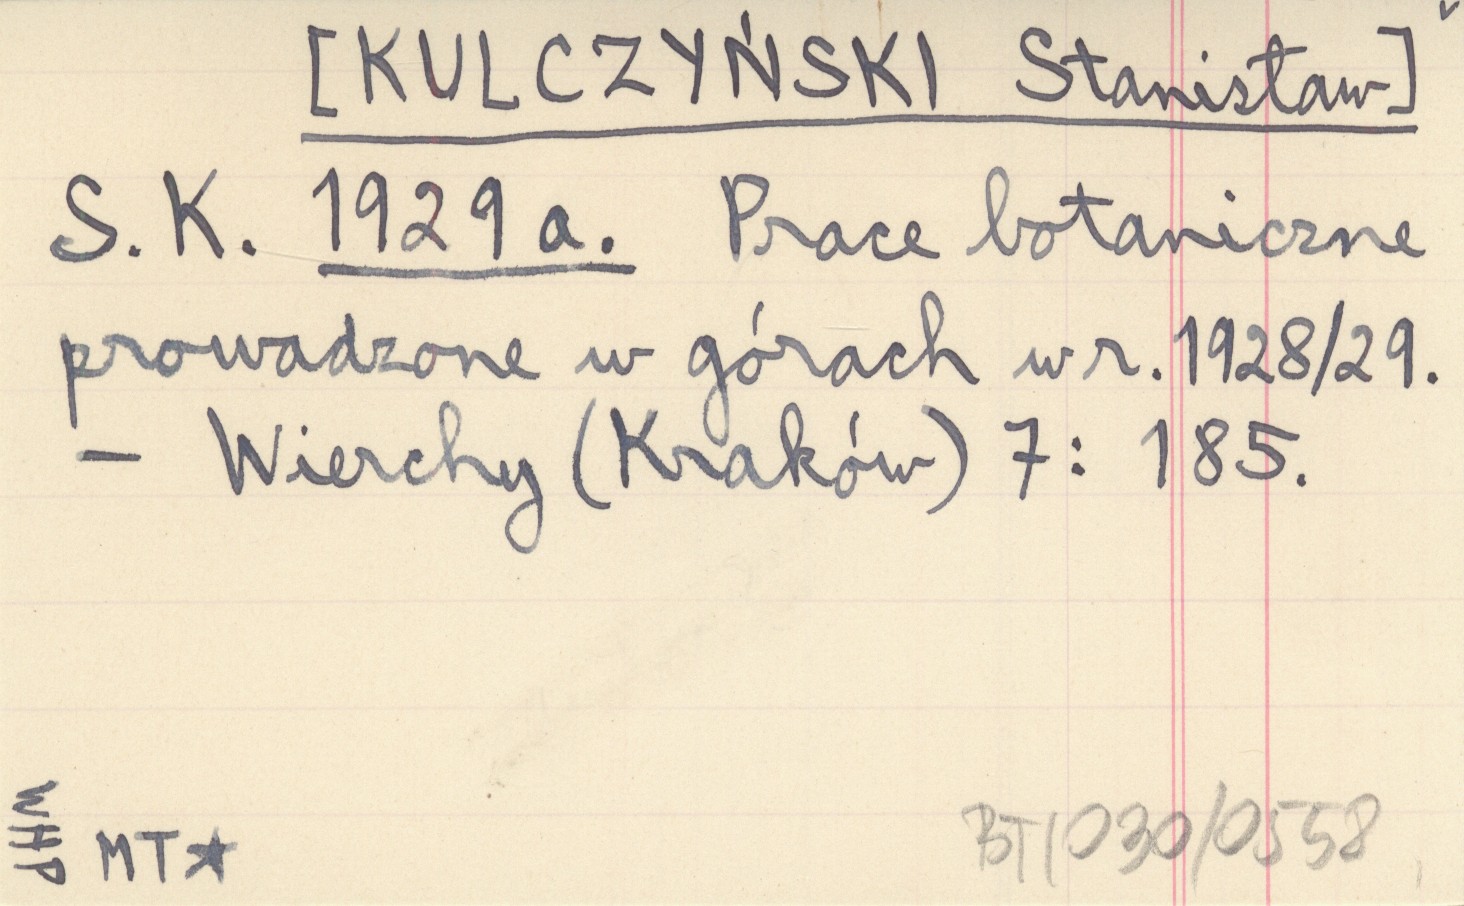 [KULCZYŃSKI Stanisław]
S. K. 1929 a. Prace botaniczne
prowadzone w górach w r. 1928/29.
— Wierchy (Kraków) 7: 185.
WHP
MT★
BT/030/0558